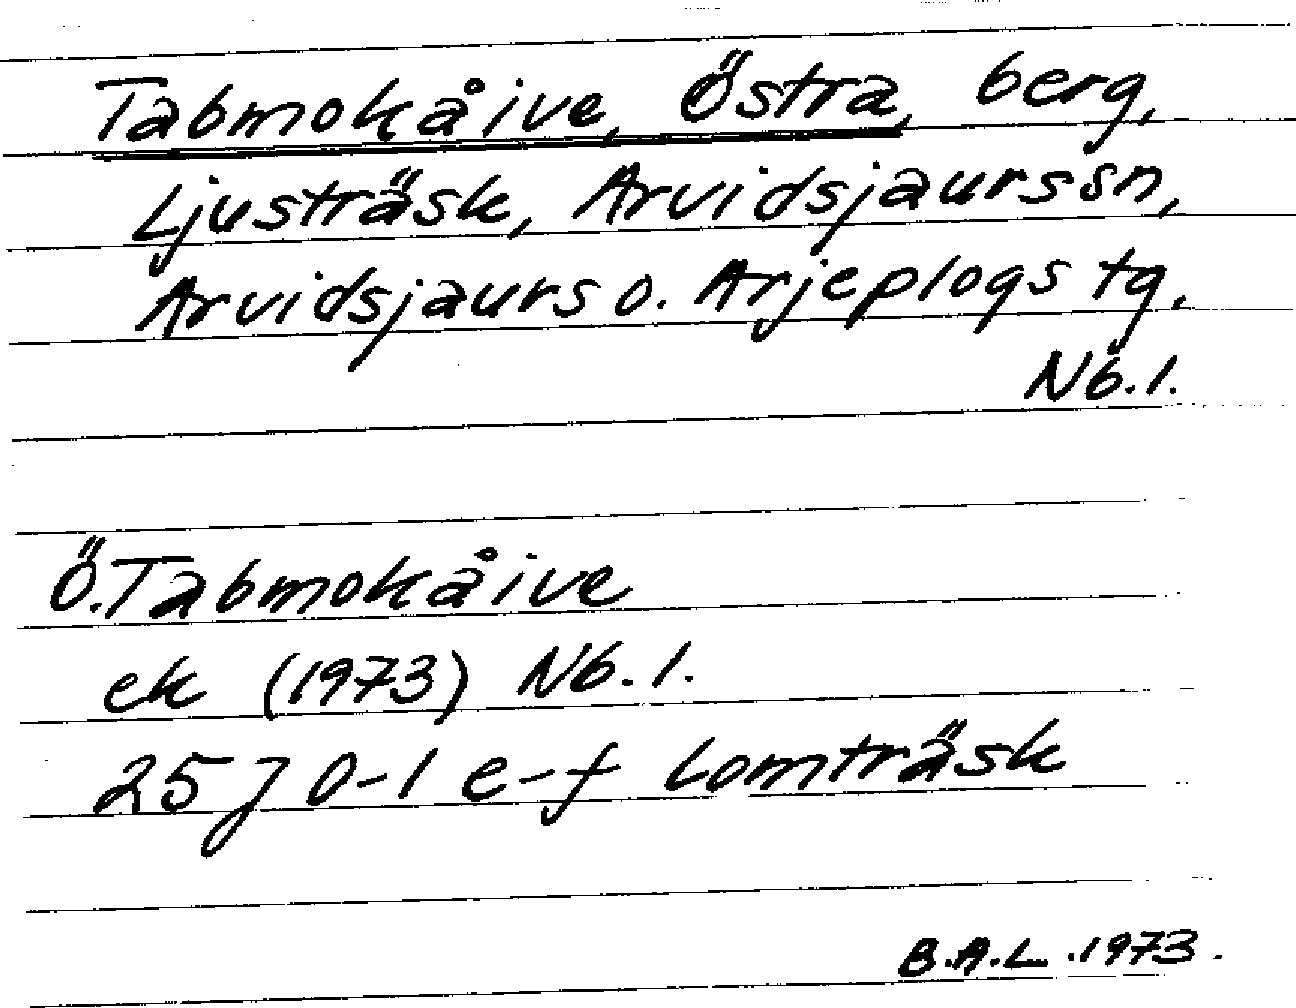 Tabmokåive, Östra, berg,
Ljusträsk, Arvidsjaurssn,
Arvidsjaurs o. Arjeplogs tg.
Nb.l.
Ö.Tabmokåive
ek (1973) Nb.l.
25 J 0-1 e-f Lomträsk
B.A.L. 1973.